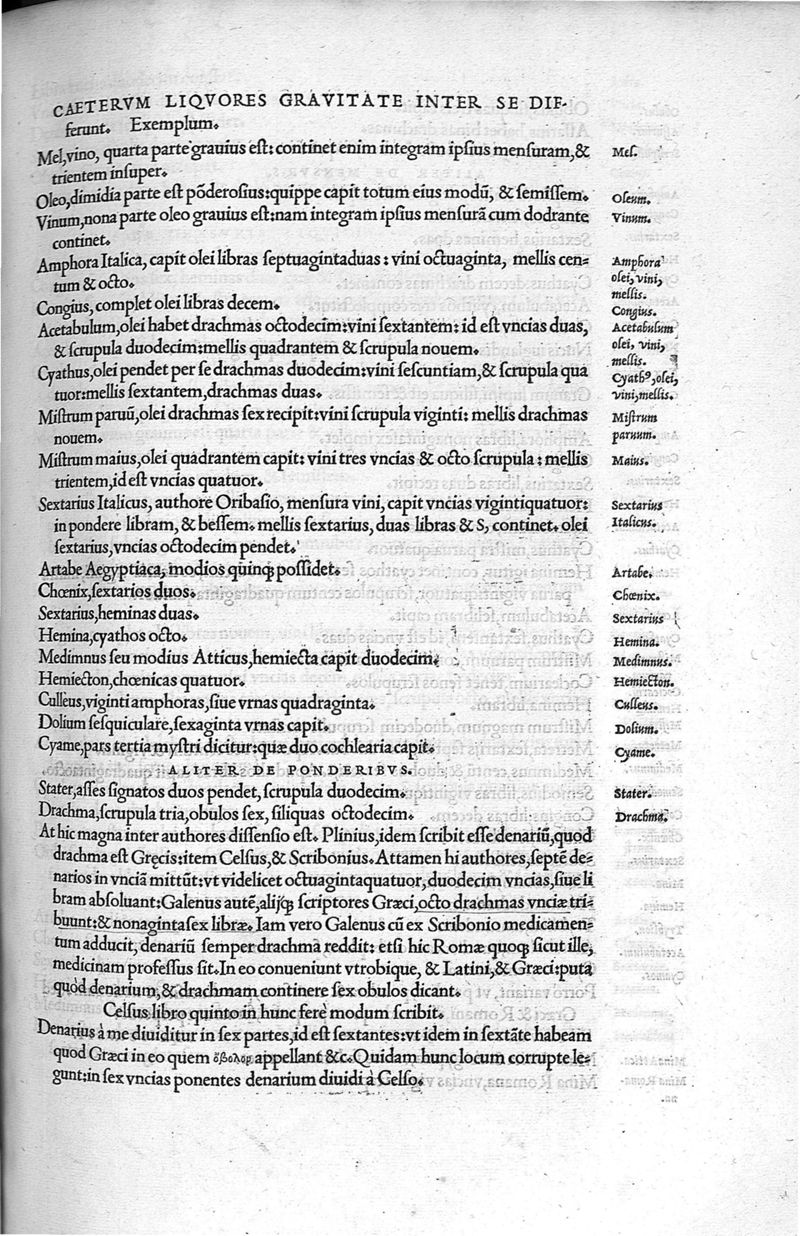 CAETERVM LIQVORES GRAVITATE INTER SE DIF-
ferunt. Exemplum.
Mel, vino, quarta parte grauius est: continet enim integram ipsius mensuram, &
trientem insuper.
Oleo, dimidia parte est põderosius: quippe capit totum eius modũ, & semissem.
Vinum, nona parte oleo grauius est: nam integram ipsius mensurã cum dodrante
continet.
Amphora Italica, capit olei libras septuagintaduas: vini octuaginta, mellis cen-
tum & octo.
Congius, complet olei libras decem.
Acetabulum, olei habet drachmas octodecim: vini sextantem: id est vncias duas,
& scrupula duodecim: mellis quadrantem & scrupula nouem.
Cyathus, olei pendet per se drachmas duodecim: vini sescuntiam, & scrupula qua
tuor: mellis sextantem, drachmas duas.
Mistrum paruũ, olei drachmas sex recipit: vini scrupula viginti: mellis drachmas
nouem.
Mistrum maius, olei quadrantem capit: vini tres vncias & octo scrupula: mellis
trientem, id est vncias quatuor.
Sextarius Italicus, authore Oribasio, mensura vini, capit vncias vigintiquatuor:
in pondere libram, & bessem. mellis sextarius, duas libras & S, continet. olei
sextarius, vncias octodecim pendet.
Artabe Aegyptiaca, modios quinq; possidet.
Chœnix, sextarios duos.
Sextarius, heminas duas.
Hemina, cyathos octo.
Medimnus seu modius Atticus, hemiecta capit duodecim.
Hemiecton, chœnicas quatuor.
Culleus, viginti amphoras, siue vrnas quadraginta.
Dolium sesquiculare, sexaginta vrnas capit.
Cyame, pars tertia mystri dicitur: quæ duo cochlearia capit.
ALITER DE PONDERIBVS.
Stater, asses signatos duos pendet, scrupula duodecim.
Drachma, scrupula tria, obulos sex, siliquas octodecim.
At hic magna inter authores dissensio est. Plinius, idem scribit esse denariũ, quod
drachma est Gręcis: item Celsus, & Scribonius. Attamen hi authores, septẽ de-
narios in vnciã mittũt: vt videlicet octuagintaquatuor, duodecim vncias, siue li
bram absoluant: Galenus autẽ, alijq; scriptores Græci, octo drachmas vnciæ tri-
buunt: & nonagintasex libræ. Iam vero Galenus cũ ex Scribonio medicamen-
tum adducit, denariũ semper drachmã reddit: etsi hic Romæ quoq; sicut ille,
medicinam professus sit. In eo conueniunt vtrobique, & Latini, & Græci: puta
quòd denarium, & drachmam continere sex obulos dicant.
Celsus libro quinto in hunc ferè modum scribit.
Denarius à me diuiditur in sex partes, id est sextantes: vt idem in sextãte habeam
quod Græci in eo quem ὀβολον appellant &c. Quidam hunc locum corrupte le-
gunt: in sex vncias ponentes denarium diuidi à Celso.
Mel.
Oleum.
Vinum.
Amphora
olei, vini,
mellis.
Congius.
Acetabulum
olei, vini,
mellis.
Cyathꝰ, olei,
vini, mellis.
Mistrum
paruum.
Maius.
Sextarius
Italicus.
Artabe.
Chœnix.
Sextarius
Hemina.
Medimnus.
Hemiecton.
Culleus.
Dolium.
Cyame.
Stater.
Drachma.